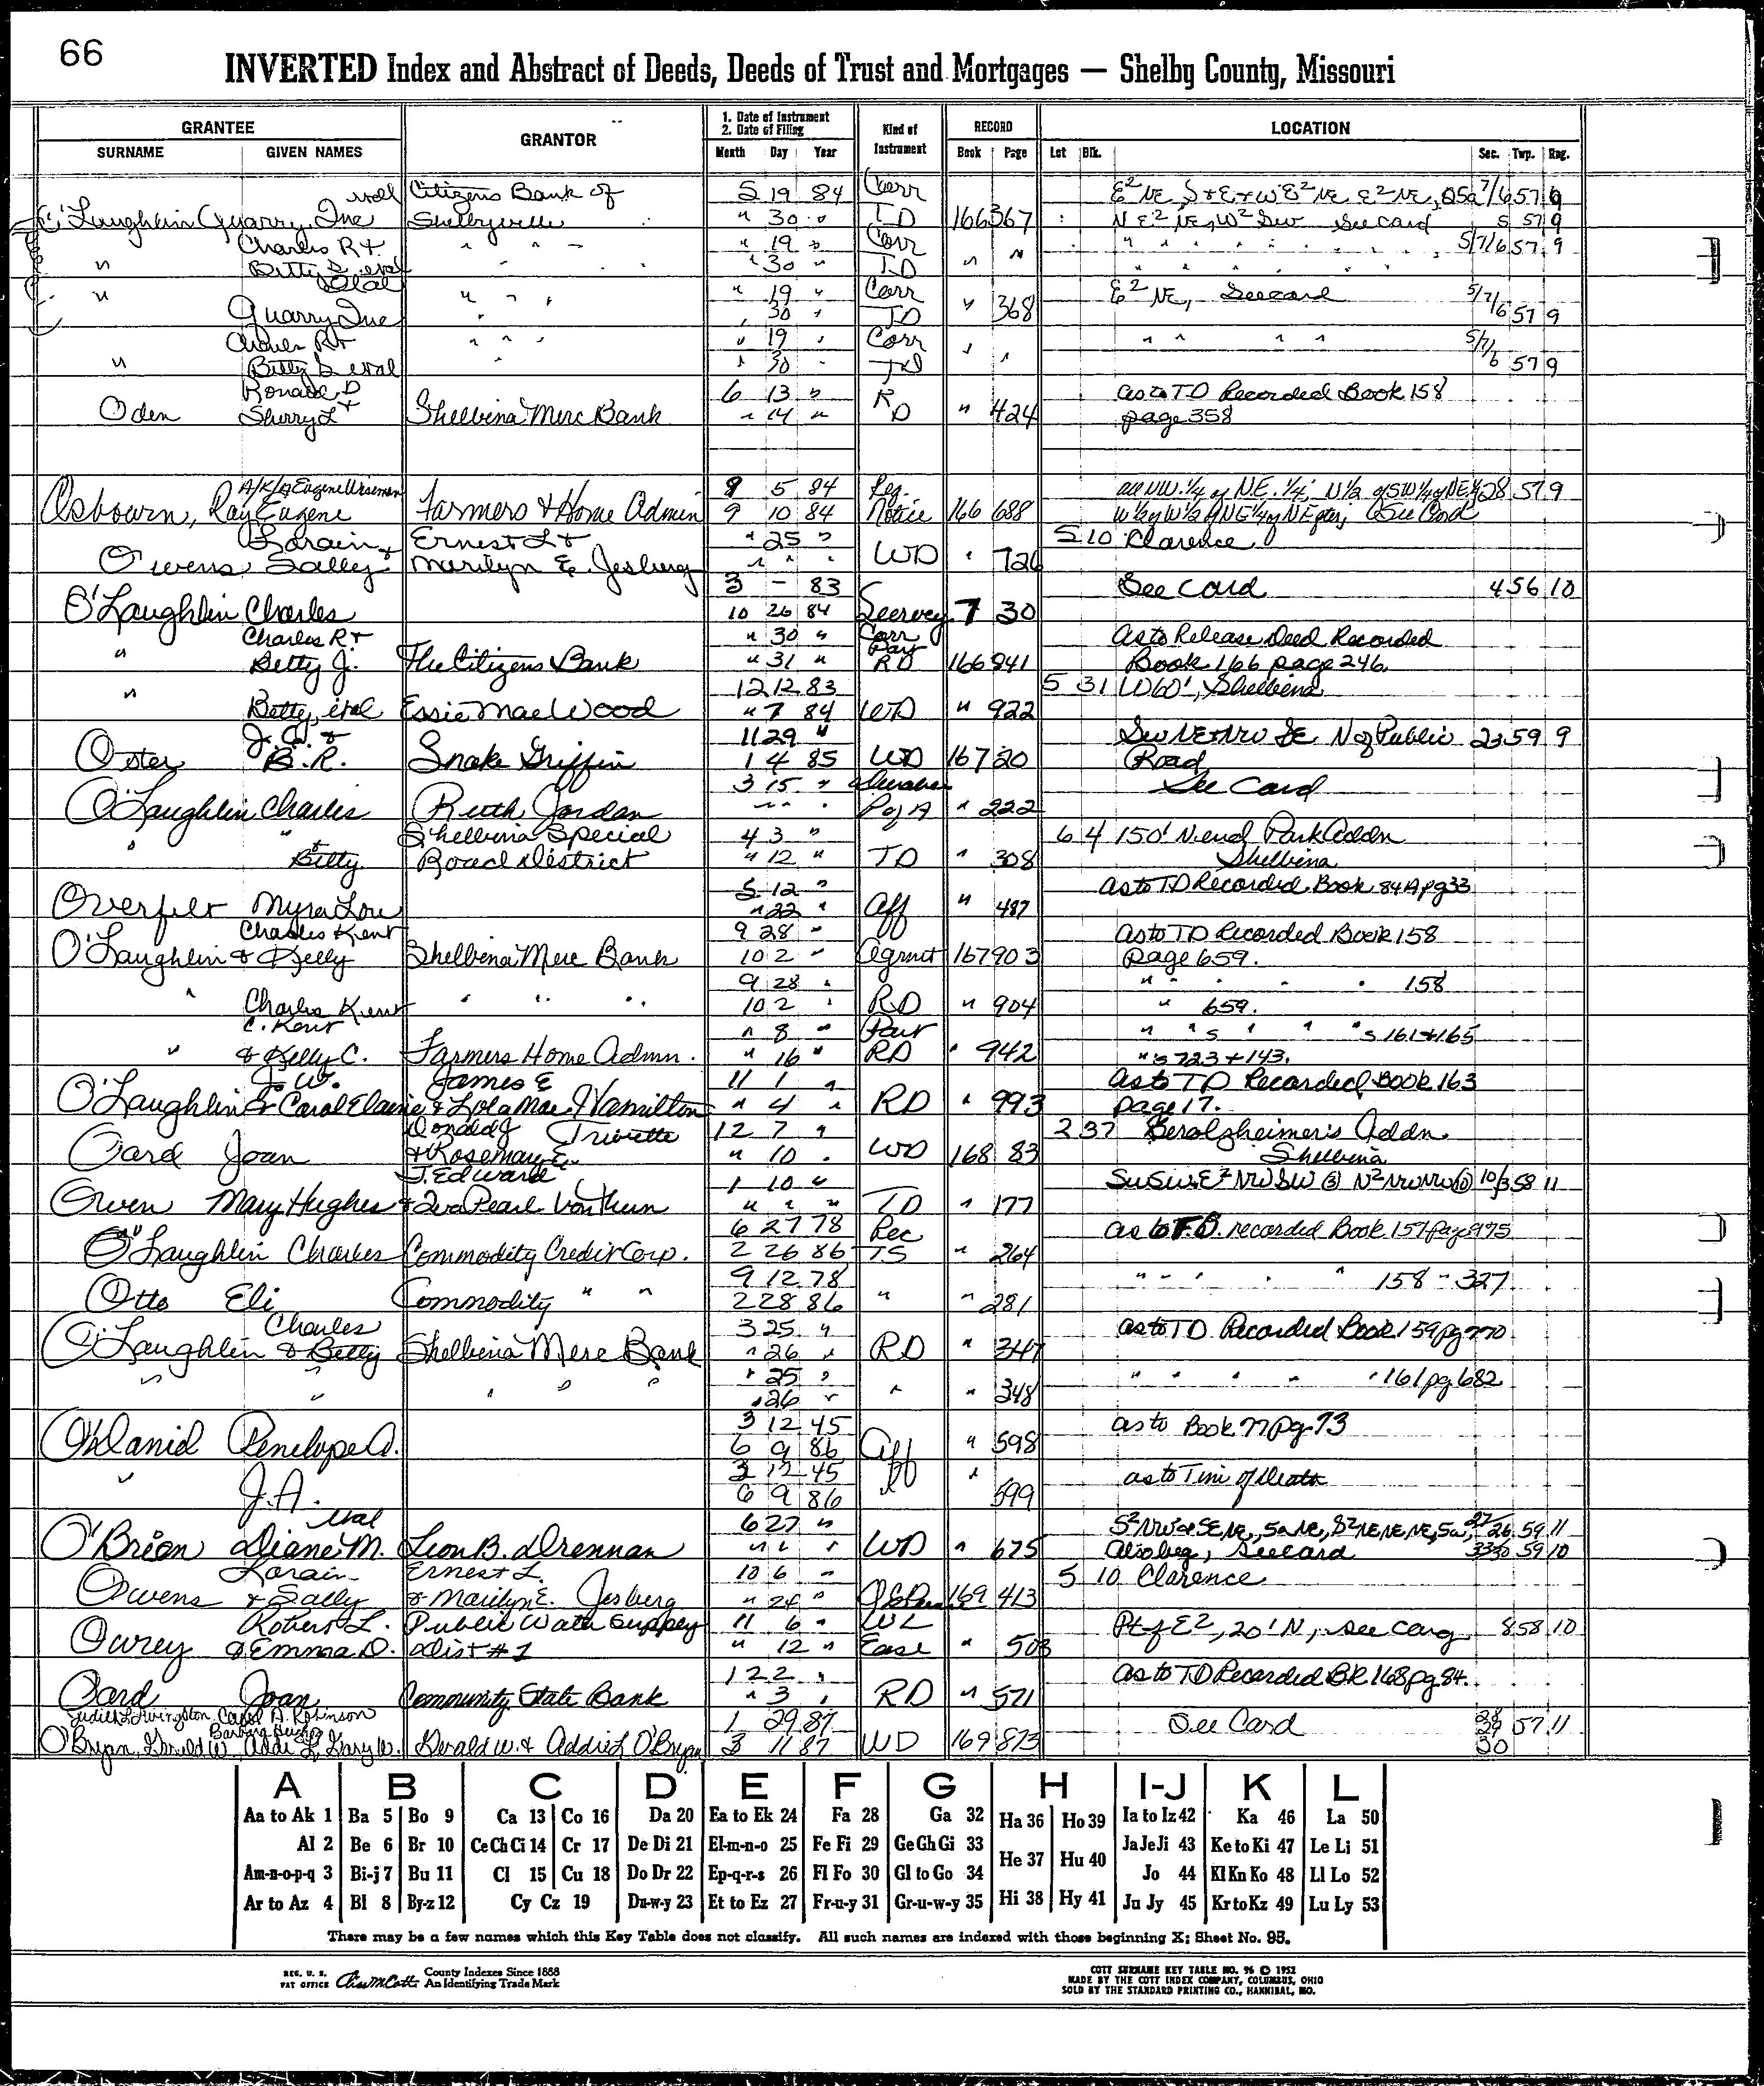 66
INVERTED Index and Abstract of Deeds, Deeds of Trust and Mortgages — Shelby County, Missouri
GRANTEE
SURNAME GIVEN NAMES
GRANTOR
1. Date of Instrument
2. Date of Filing
Month Day Year
Kind of Instrument
RECORD
Book Page
LOCATION
Lot Blk. Sec. Twp. Rng.
Citizens Bank of 5 19 84 Corr
O'Laughlin Quarry, Inc Shelbyville " 30 " TD 166 367 See card 5 57 9
Charles R + " " " " 19 " Corr 5/7/6 57 9
" Betty " 30 " TD " "
" " " " " 19 " Corr E² NE, See card 5/7/6 57 9
Quarry Inc 30 " TD " 368
" " " " 19 " Corr " " " " 5/7/6 57 9
" Betty " 30 " "
Ronald D 6 13 " R As to TD Recorded Book 158
Oden Sherry L + Shelbina Merc Bank " 14 " D " 424 page 358
A/K/A Eugene Wiseman 9 5 84 28 57 9
Osbourn, Ray Eugene Farmers & Home Admin 9 10 84 Notice 166 688 See Card
Lorain + Ernest L + " 25 " 5 10 Clarence
Owens Sally Marilyn E. Jesberg WD " 726
3 - 83 See Card 4 56 10
O'Laughlin Charles 10 26 84 7 30
Charles R + " 30 " Corr As to Release Deed Recorded
" Betty J. The Citizens Bank " 31 " RD 166 841 Book 166 page 246.
" 12 12 83 5 31 W 60', Shelbina
Betty, etal Essie Mae Wood " 7 84 WD " 922
J. W. & 11 29 " SW NE + NW SE N of Public 23 59 9
Oster B. R. Snake Griffin 1 4 85 WD 167 20 Road
3 15 " See Card
O'Laughlin Charles Ruth Jordan " " " P of A " 222
" " Shelbina Special 4 3 " 6 4 150' N. end Park Addn
+ Betty Road District " 12 " TD " 308 Shelbina
5 12 " As to TD Recorded Book 84A pg 33
Overfelt Myra Lou " 22 " Aff " 487
Charles Kent 9 28 " As to TD Recorded Book 158
O'Laughlin & Kelly Shelbina Merc Bank 10 2 " Agrmt 167 903 page 659.
9 28 " " " " " 158
" Charles Kent " " " 10 2 " RD " 904 " 659.
C. Kent " 8 " Part " "s " " "s 161 + 165
" & Kelly C. Farmers Home Admn. " 16 " RD " 942 "s 723 + 143.
J. W. James E 11 1 " As to TD Recorded Book 163
O'Laughlin & Carol Elaine & Lola Mae Hamilton " 4 " RD " 993 page 17.
Donald J Trivette 12 7 " 2 37 Berolzheimer's Addn.
Oard Joan + Rosemary E. " 10 " WD 168 83 Shelbina
J. Edward 1 10 " 10/3 58 11
Owen Mary Hughes & Iva Pearl VonThun " " " TD " 177
6 27 78 Rec As to F.S. recorded Book 157 page 975
O'Laughlin Charles Commodity Credit Corp. 2 26 86 TS " 264
9 12 78 " " " " " 158 - 327
Otto Eli Commodity " " 2 28 86 " " 281
Charles 3 25 " As to TD Recorded Book 159 pg 770
O'Laughlin & Betty Shelbina Merc Bank " 26 " RD " 347
" " " " " " 25 " " " " " " 161 pg. 682
" 26 " " " 348
3 12 45 As to Book 77 pg. 73
O'Daniel Penelope A. 6 9 86 Aff " 598
" J. A. 3 12 45 " as to Time of Death
6 9 86 599
etal 6 27 " 26 59 11
O'Brien Diane M. Leon B. Drennan " " " WD " 675 Also beg, See card 59 10
Lorain Ernest L. 10 6 " 5 10 Clarence
Owens & Sally & Marilyn E. Jesberg " 24 " 169 413
Robert L. Public Water Supply 11 6 " WL Pt of E², 20' N, see card 8 58 10
Owrey & Emma D. Dist # 1 " 12 " Ease " 503
12 2 " As to TD Recorded BK 168 pg 84.
Oard Joan Community State Bank " 3 " RD " 571
Judith Livingston Carol A. Robinson 1 29 87 See Card 28 29 30 57 11
O'Bryan, Gerald W. Addie L Gary W. Gerald W. & Addie L O'Bryan 3 11 87 WD 169 873
A B C D E F G H I-J K L
Aa to Ak 1 Ba 5 Bo 9 Ca 13 Co 16 Da 20 Ea to Ek 24 Fa 28 Ga 32 Ha 36 Ho 39 Ia to Iz 42 Ka 46 La 50
Al 2 Be 6 Br 10 Ce Ch Ci 14 Cr 17 De Di 21 El-m-n-o 25 Fe Fi 29 Ge Gh Gi 33 He 37 Hu 40 Ja Je Ji 43 Ke to Ki 47 Le Li 51
Am-n-o-p-q 3 Bi-j 7 Bu 11 Cl 15 Cu 18 Do Dr 22 Ep-q-r-s 26 Fl Fo 30 Gl to Go 34 Jo 44 Kl Kn Ko 48 Ll Lo 52
Ar to Az 4 Bl 8 By-z 12 Cy Cz 19 Du-w-y 23 Et to Ez 27 Fr-u-y 31 Gr-u-w-y 35 Hi 38 Hy 41 Ju Jy 45 Kr to Kz 49 Lu Ly 53
There may be a few names which this Key Table does not classify. All such names are indexed with those beginning X; Sheet No. 95.
REG. U. S. PAT OFFICE County Indexes Since 1888 An Identifying Trade Mark
COTT SURNAME KEY TABLE NO. 96 © 1952
MADE BY THE COTT INDEX COMPANY, COLUMBUS, OHIO
SOLD BY THE STANDARD PRINTING CO., HANNIBAL, MO.